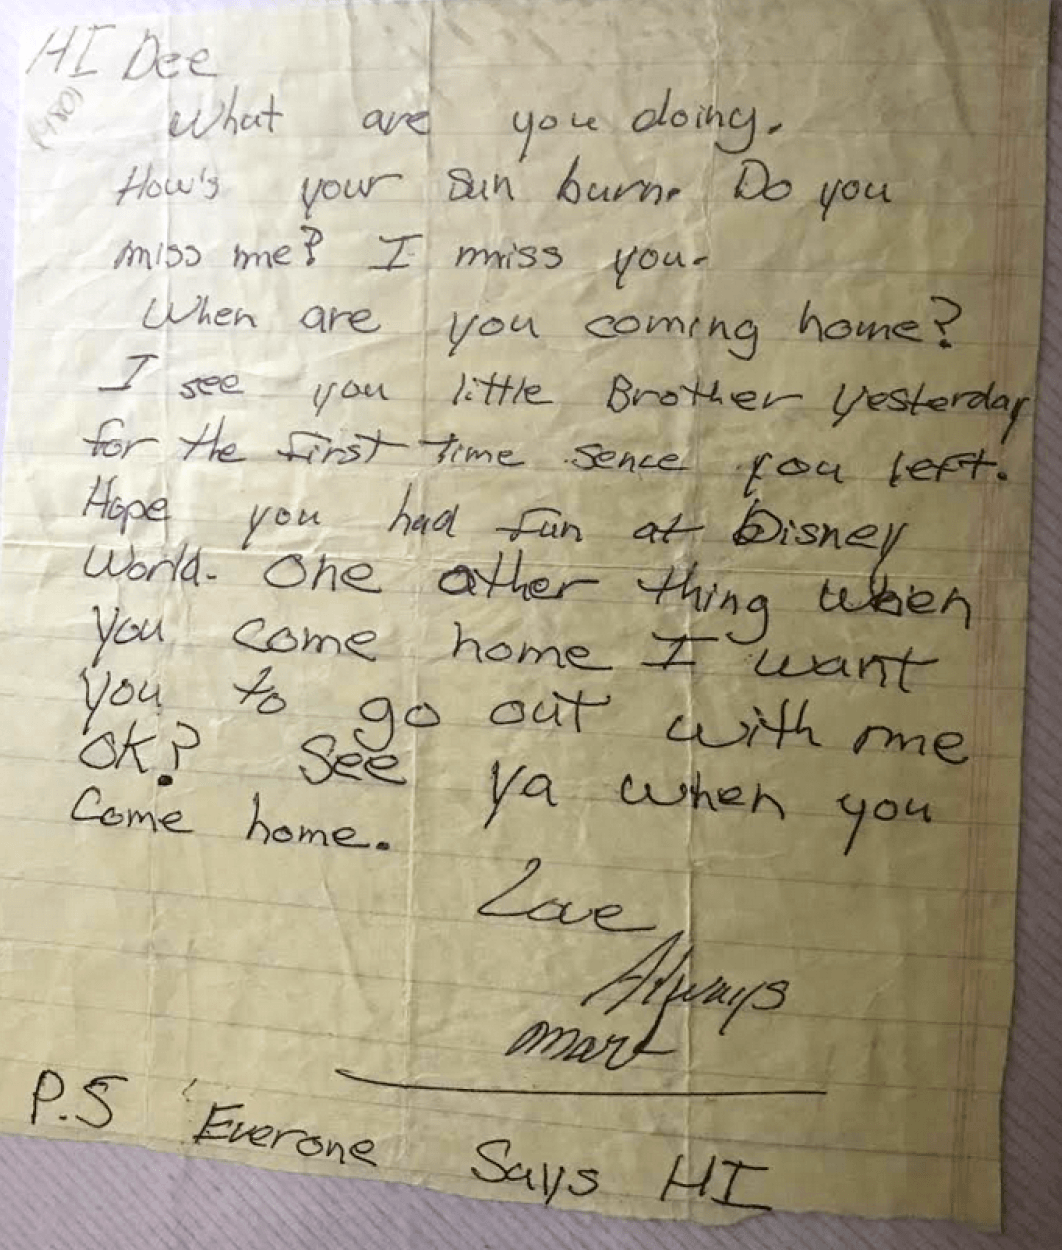 HI Dee
What are you doing.
How's your sun burn. Do you
miss me? I miss you.
When are you coming home?
I see you little Brother yesterday
for the first time sence you left.
Hope you had fun at Disney
World. One other thing when
you come home I want
you to go out with me
OK? See ya when you
Come home.
Love
Always
P.S Everone Says HI